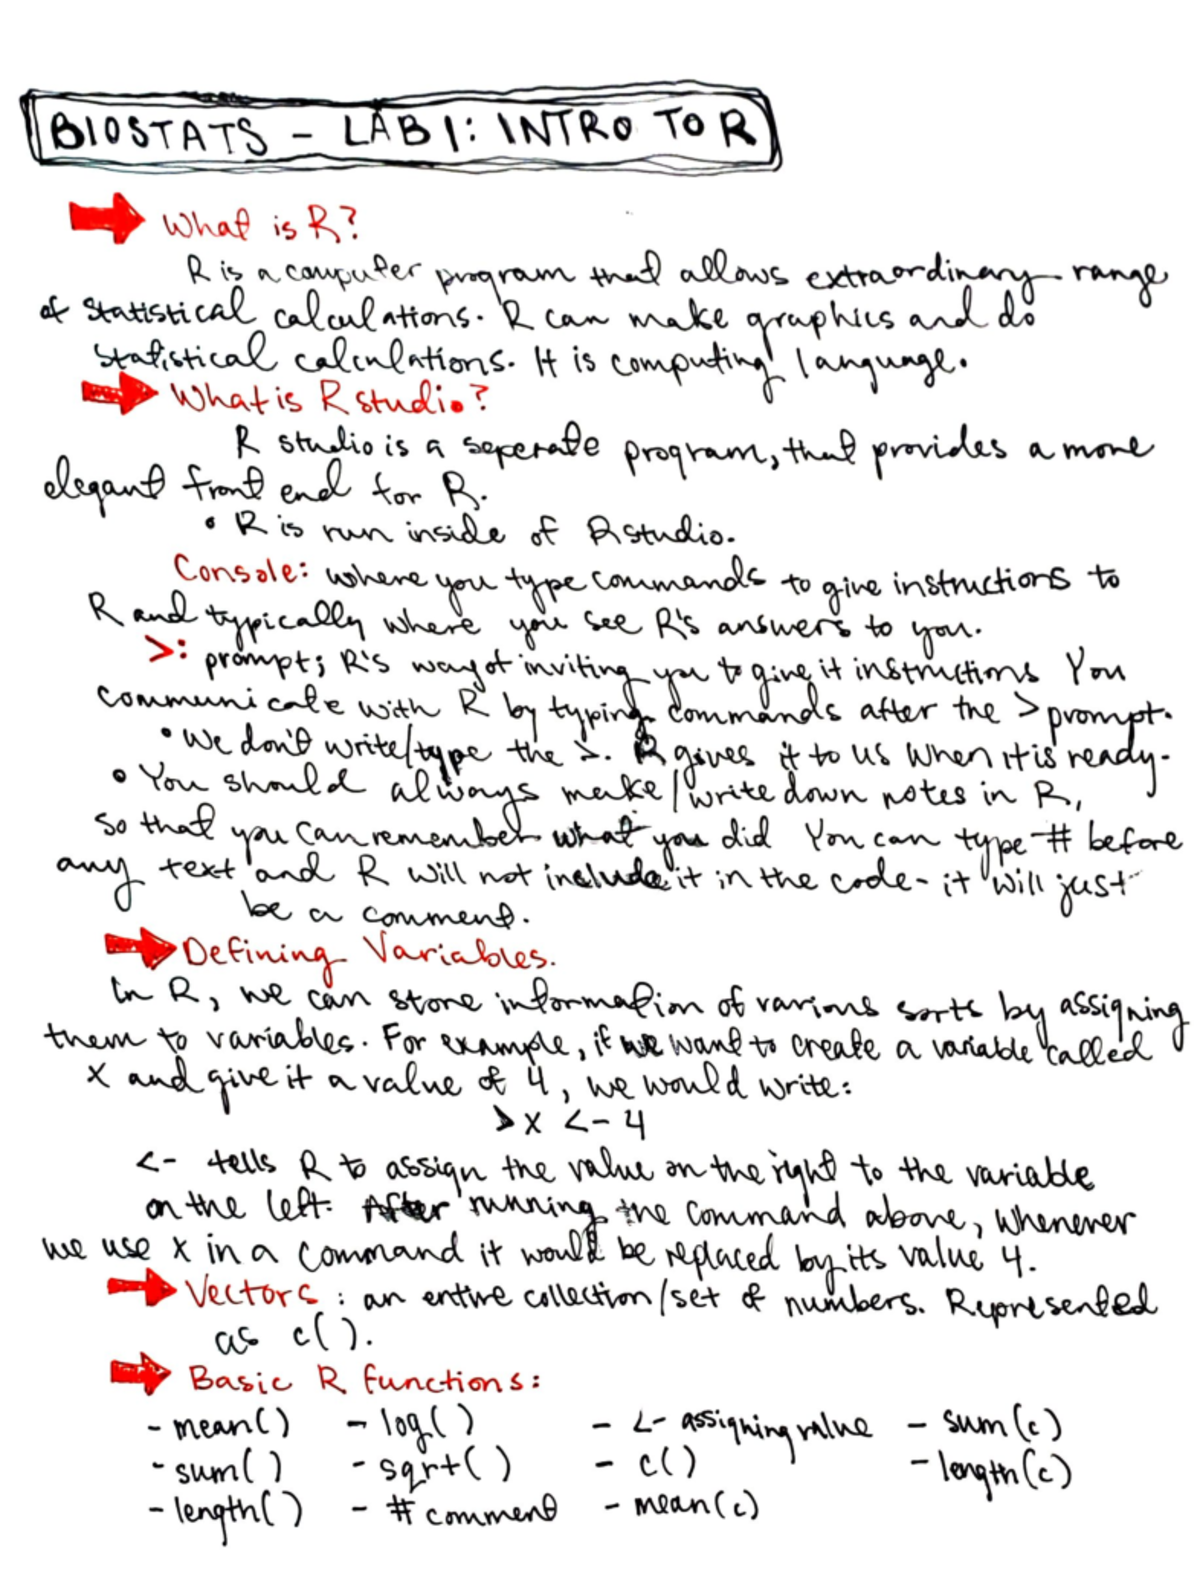 BIOSTATS - LAB 1: INTRO TO R
What is R?
R is a computer program that allows extraordinary range
of statistical calculations. R can make graphics and do
statistical calculations. It is computing language.
What is R studio?
R studio is a seperate program, that provides a more
elegant front end for R.
• R is run inside of Rstudio.
Console: where you type commands to give instructions to
R and typically where you see R's answers to you.
>: prompt; R's way of inviting you to give it instructions You
communicate with R by typing commands after the > prompt.
• We don't write/type the >. R gives it to us when it is ready.
• You should always make/write down notes in R,
so that you can remember what you did You can type # before
any text and R will not include it in the code - it will just
be a comment.
Defining Variables.
In R, we can store information of various sorts by assigning
them to variables. For example, if we want to create a variable called
x and give it a value of 4, we would write:
> x <- 4
<- tells R to assign the value on the right to the variable
on the left. After running the command above, whenever
we use x in a command it would be replaced by its value 4.
Vectors: an entire collection/set of numbers. Represented
as c().
Basic R functions:
- mean() - log() - <- assigning value - sum(c)
- sum() - sqrt() - c() - length(c)
- length() - # comment - mean(c)